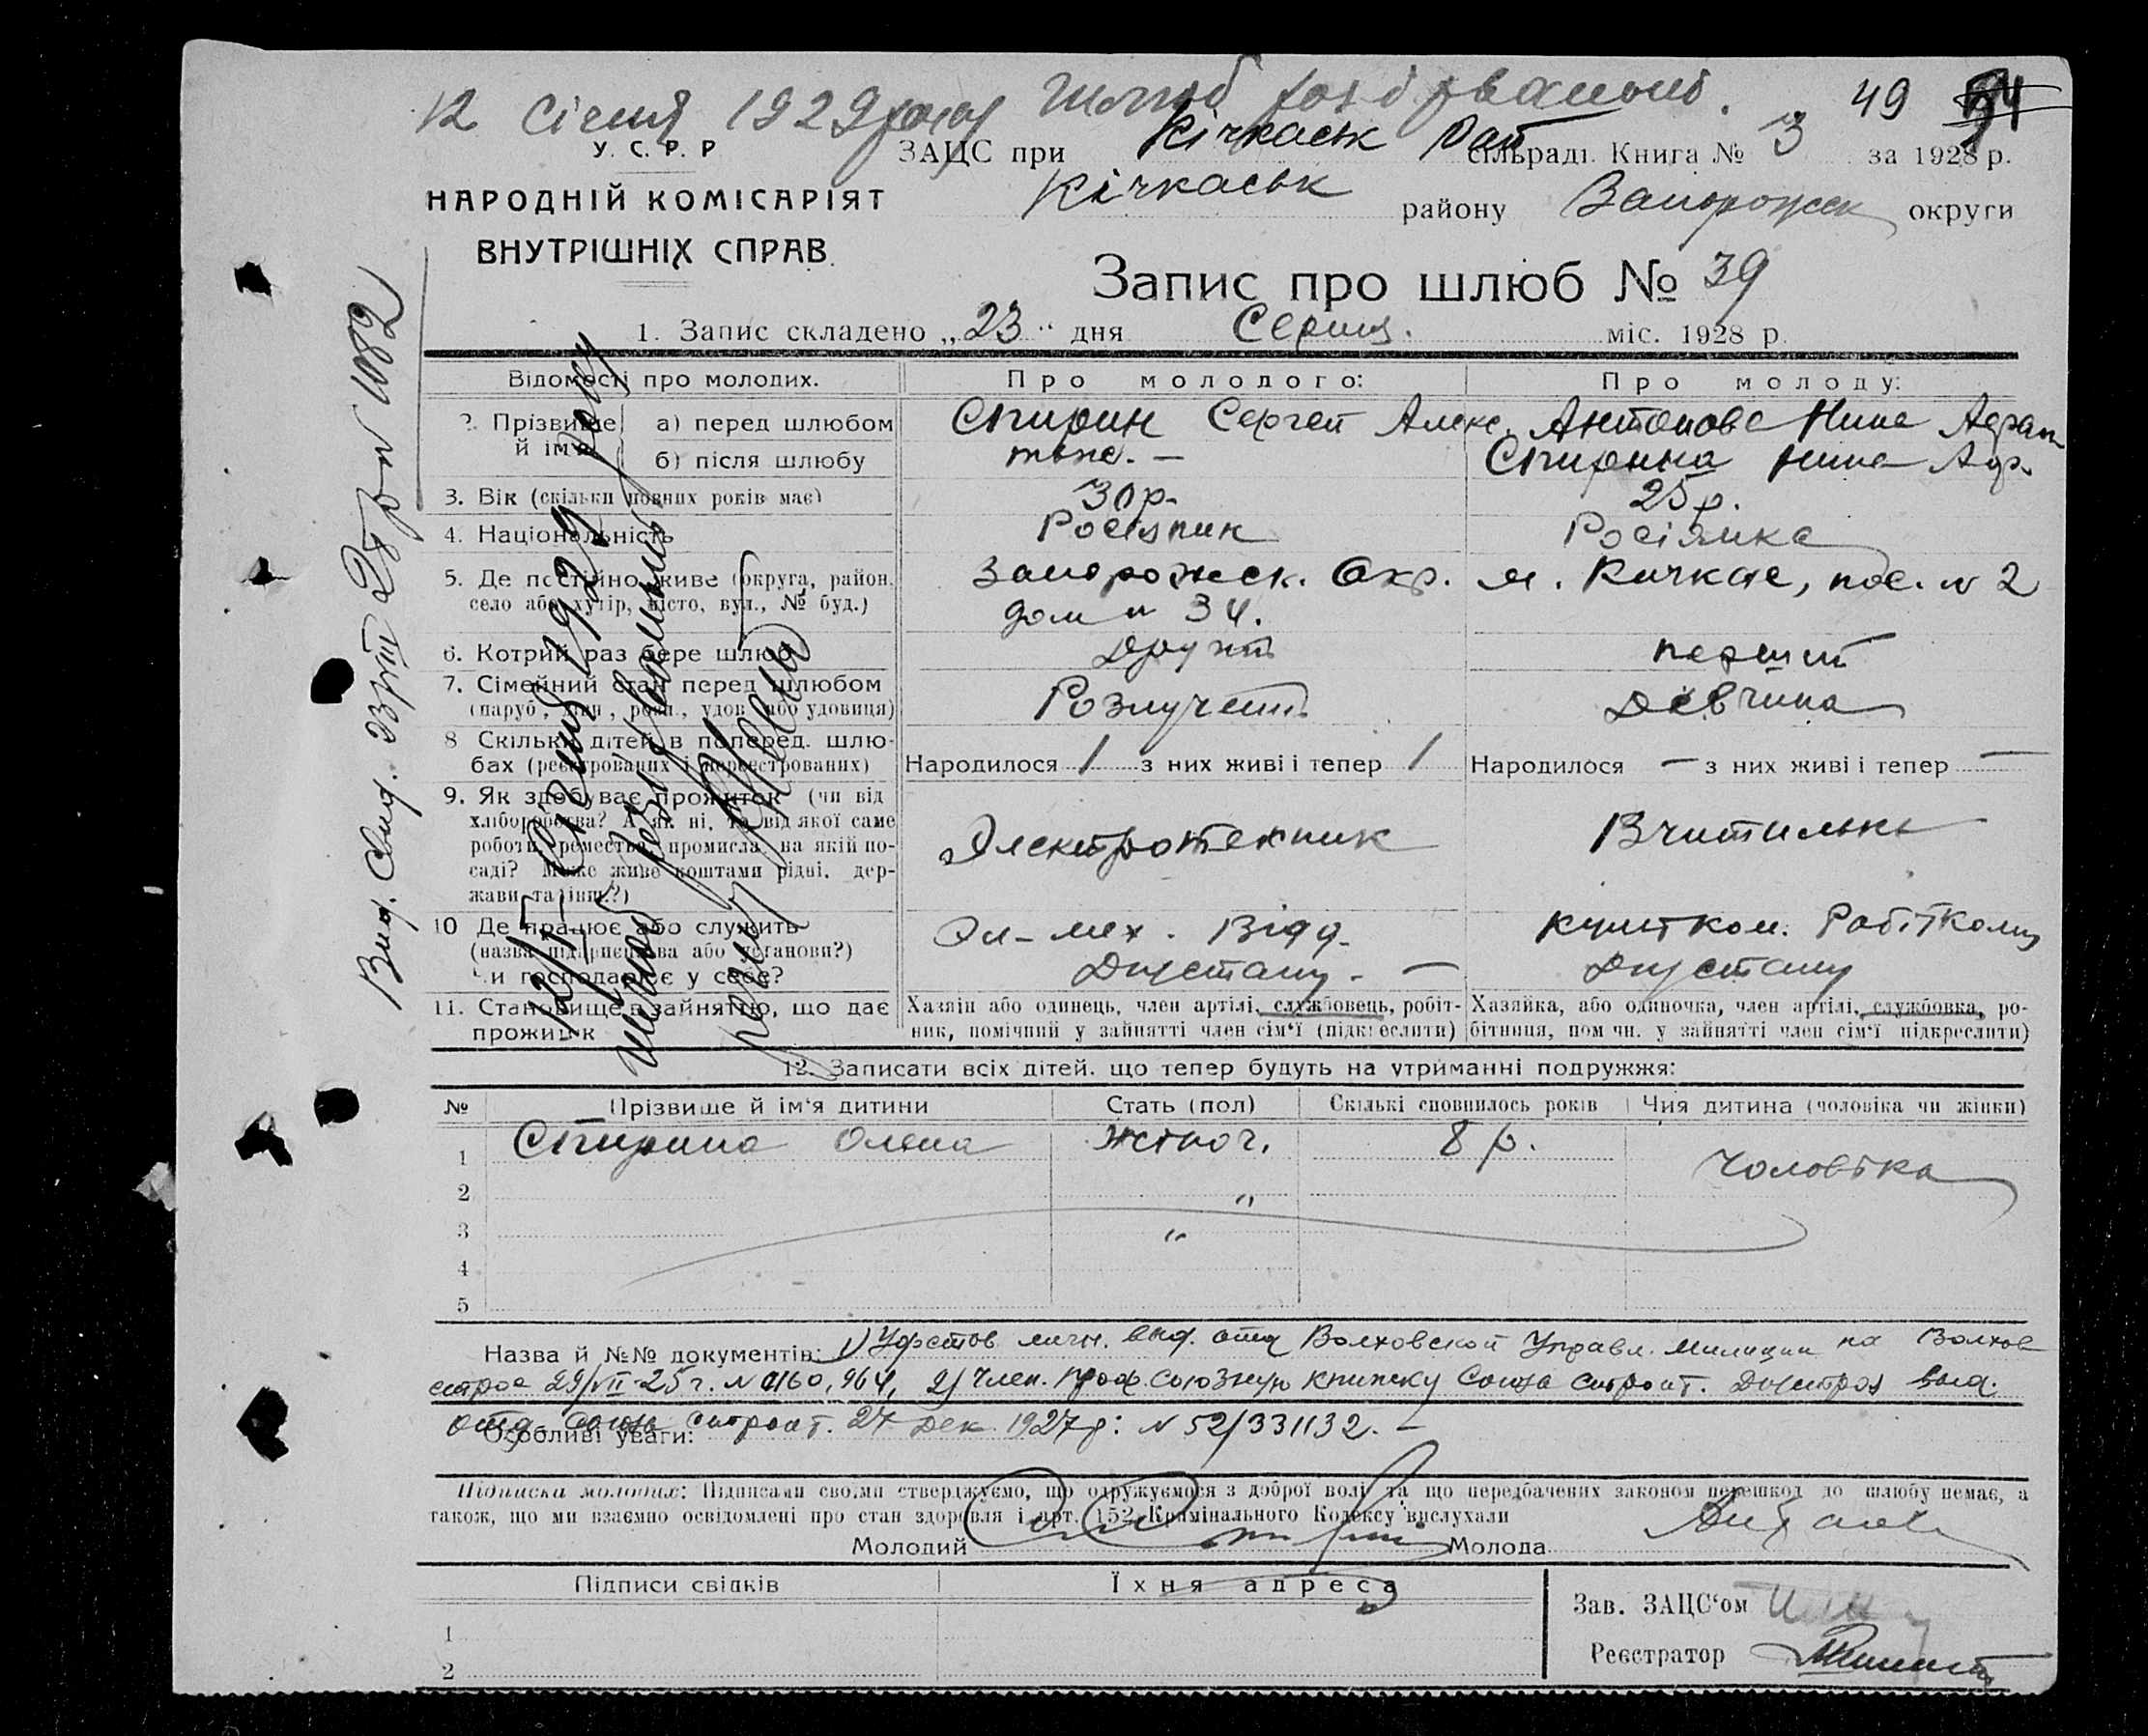 12 Січня 1929 року Шлюб розірваний. 49
У. С. Р. Р
ЗАЦС при Кічкаськ Рай сільраді. Книга № 3 за 1928 р.
НАРОДНІЙ КОМІСАРІЯТ
ВНУТРІШНІХ СПРАВ.
Кічкаськ району Запорожск округи
Запис про шлюб № 39
1. Запис складено „23“ дня Серпц. міс. 1928 р.
Відомості про молодих.
Про молодого:
Про молоду:
2. Прізвище й ім'я
а) перед шлюбом
Спирин Сергей Алекс.
Антонова Нина Адрап
б) після шлюбу
тьже. —
Спирина Нина Адр.
3. Вік (скільки повних років має)
30 р.
25 р.
4. Національність
Росіяник
Росіянка
5. Де постійно живе (округа, район,
село або хутір, місто, вул., № буд.)
Запорожск. Окр. м. Кичкас, пос. № 2
дом № 34.
6. Котрий раз бере шлюб
Другий
перший
7. Сімейний стан перед шлюбом
(паруб., дівч., розл., удов. або удовиця)
Розлучений
Дівчина
8 Скільки дітей в поперед. шлю-
бах (реєстрованих і нереєстрованих)
Народилося 1 з них живі і тепер 1
Народилося — з них живі і тепер —
9. Як здобуває прожиток (чи від
хліборобства? А як ні, то від якої саме
роботи, ремества, промисла, на якій по-
саді? Може живе коштами рідні, дер-
жави та інш.?)
Электротехник
Вчителька
10 Де працює або служить
(назва підприємства або установи?)
Чи господарює у себе?
Эл-мех. Відд.
Дніпстану. —
культком. Робіткому
Дніпстану
11. Становище в зайняттю, що дає
прожиток
Хазяїн або одинець, член артілі, службовець, робіт-
ник, помічний у зайнятті член сім'ї (підкреслити)
Хазяйка, або одиночка, член артілі, службовка, ро-
бітниця, помічн. у зайнятті член сім'ї підкреслити)
Вид. Свид.
№ 1082
12/I Січня 1929 року
шлюб розірваний
12. Записати всіх дітей, що тепер будуть на утриманні подружжя:
№ Прізвище й ім'я дитини Стать (пол) Скількі сповнилось років Чия дитина (чоловіка чи жінки)
1 Спирина Олена жіноч. 8 р. Чоловіка
2 „
3 „
4
5
Назва й №№ документів: 1) Удостов. личн. выд. отд Волховской Управл. Милиции на Волхов
строе 29/VII-25 г. № 4160, 964, 2) Член. Проф. союзную книжку Союза строит. Днепростр выд.
отд. союза строит. 27 дек. 1927 г: № 52/331132. —
Особливі уваги:
Підписка молодих: Підписами своїми стверджуємо, що одружуємося з доброї волі та що передбачених законом перешкод до шлюбу немає, а
також, що ми взаємно освідомлені про стан здоровля і арт. 152 Крімінального Кодексу вислухали
Молодий
Молода Антонова
Підписи свідків
Їхня адреса
1
2
Зав. ЗАЦС'ом
Реєстратор